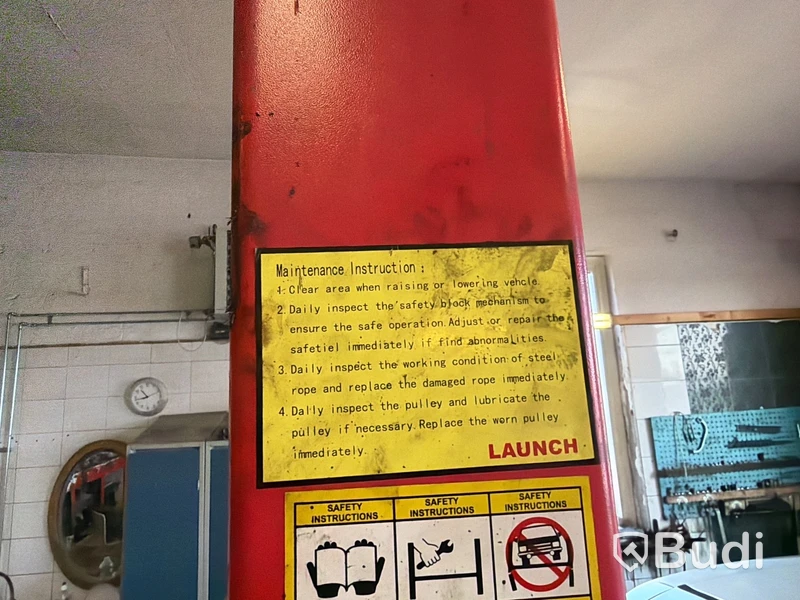 Maintenance Instruction :
1. Clear area when raising or lowering vehcle.
2. Daily inspect the safety block mechanism to
ensure the safe operation. Adjust or repair the
safetiel immediately if find abnormalities.
3. Daily inspect the working condition of steel
rope and replace the damaged rope immediately.
4. Dally inspect the pulley and lubricate the
pulley if necessary. Replace the worn pulley
immediately.
LAUNCH
SAFETY
INSTRUCTIONS
SAFETY
INSTRUCTIONS
SAFETY
INSTRUCTIONS
Budi